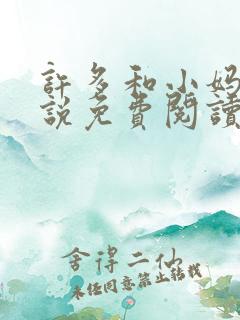 許多和小妈
説免費閱讀
舍得二仙
未经同意禁止转载